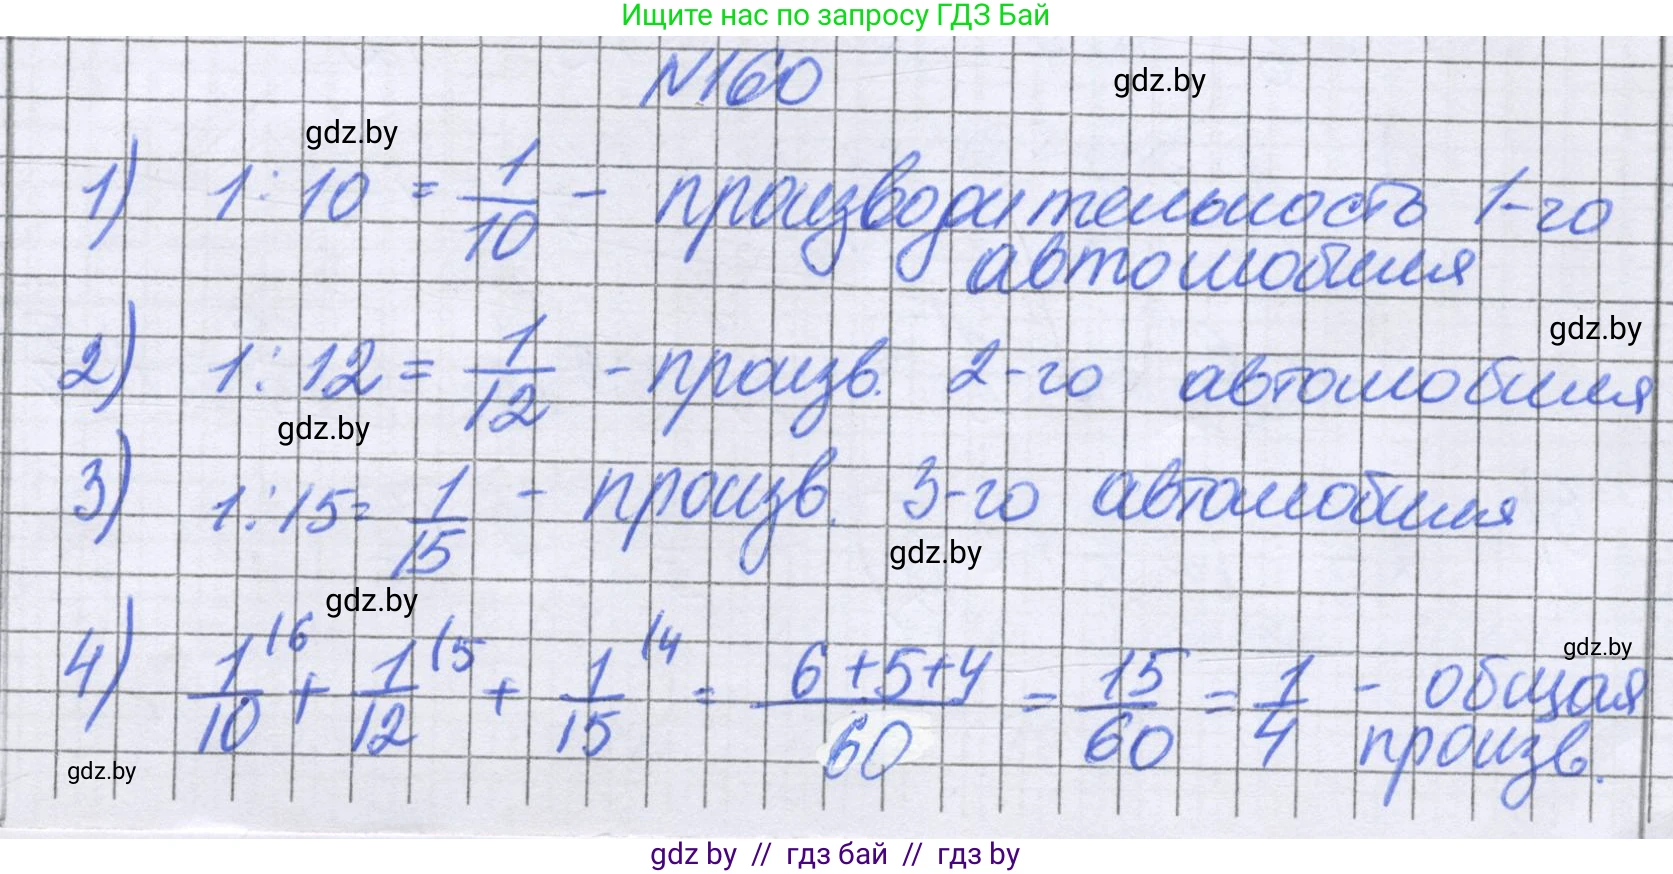 Ищите нас по запросу ГДЗ Бай
№160
gdz.by
gdz.by
1) 1 : 10 = 1/10 - производительность 1-го
автомобиля
gdz.by
2) 1 : 12 = 1/12 - произв. 2-го автомобиля
gdz.by
3) 1 : 15 = 1/15 - произв. 3-го автомобиля
gdz.by
gdz.by
4) 1/10 \6 + 1/12 \5 + 1/15 \4 = 6+5+4/60 = 15/60 = 1/4 - общая
произв.
gdz.by
gdz.by
gdz by // гдз бай // гдз by